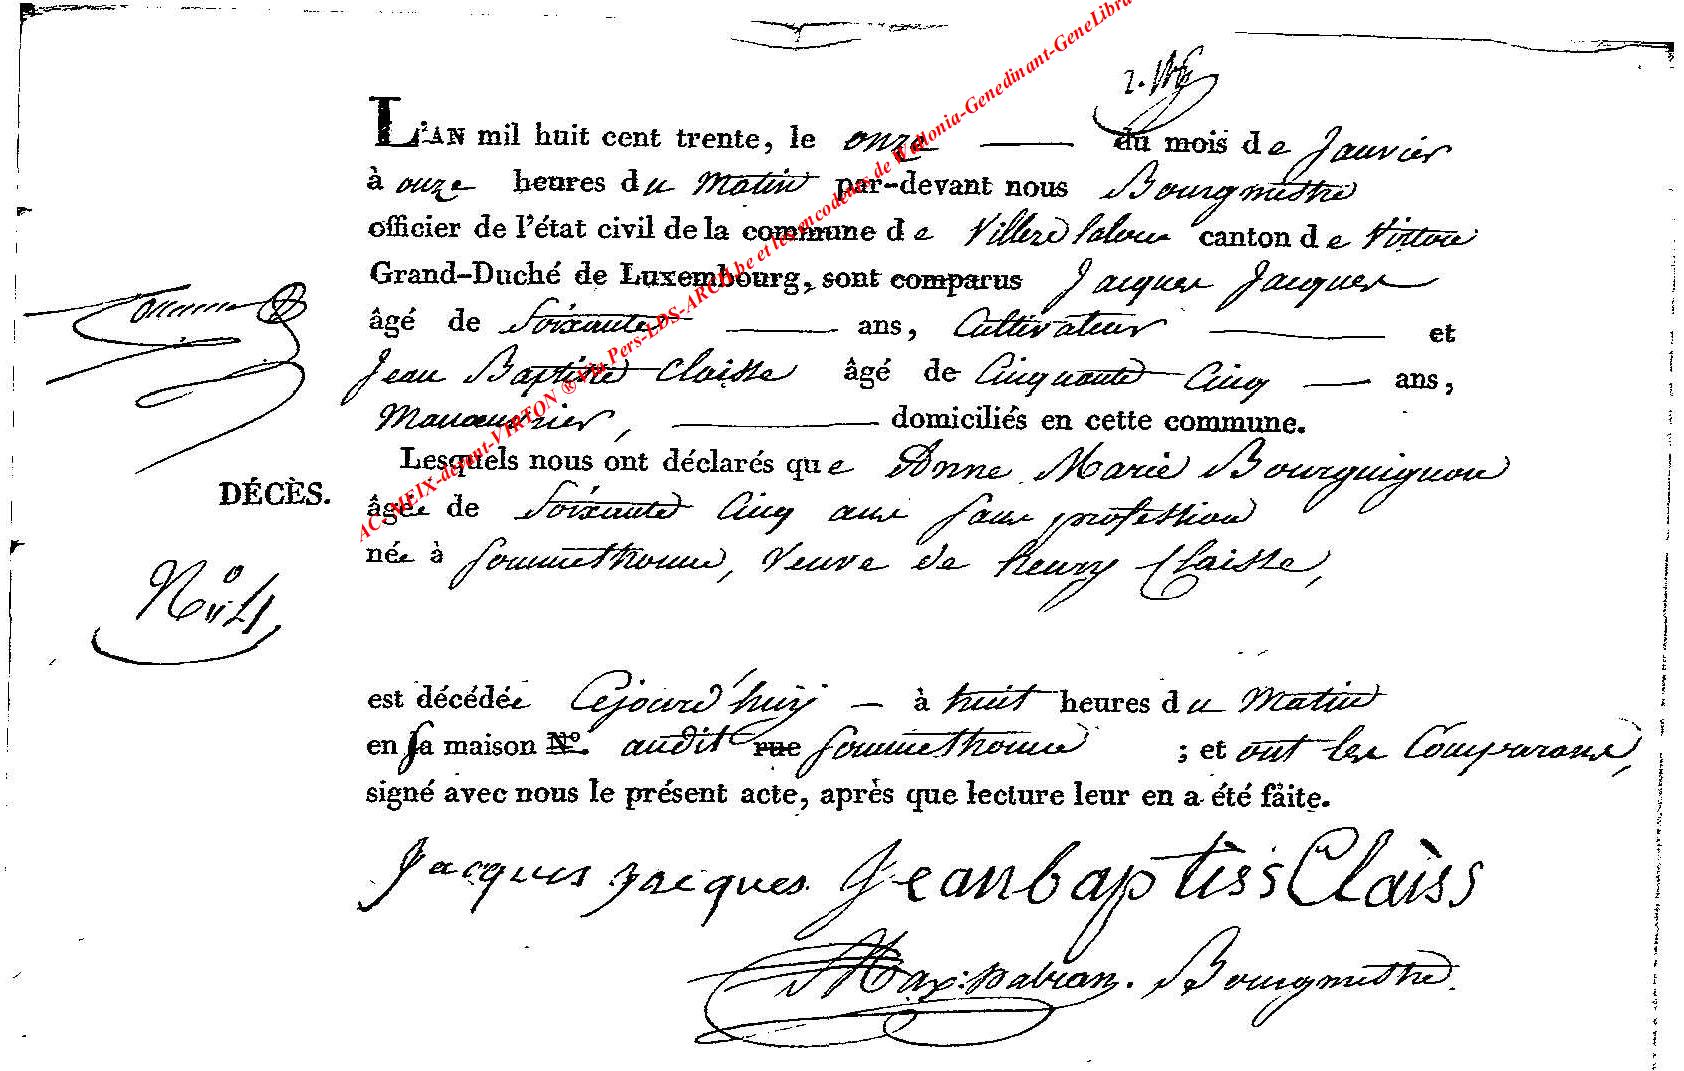 L'AN mil huit cent trente, le onze du mois de Janvier
à onze heures du Matin par-devant nous Bourgmestre
officier de l'état civil de la commune de Villers laloue canton de Virton
Grand-Duché de Luxembourg, sont comparus Jacques Jacques
âgé de Soixante ans, Cultivateur et
Jean Baptiste Claisse âgé de Cinquante Cinq ans,
Manoeuvrier, domiciliés en cette commune.
Lesquels nous ont déclarés que Anne Marie Bourguignon
DÉCÈS.
âgée de Soixante Cinq ans sans profession
née à Sommethonne, Veuve de henry Claisse,
N° 4
est décédée Cejourd'huy à huit heures du Matin
en sa maison N°. audit rue Sommethonne ; et ont les Comparans,
signé avec nous le présent acte, après que lecture leur en a été faite.
Jacques Jacques Jeanbaptiss Claiss
Bourgmestre.
AC-MEIX-devant-VIRTON ® Via Pers-LDS-ARCH.be et les encodeurs de Wallonia-Genedinant-GeneLibra